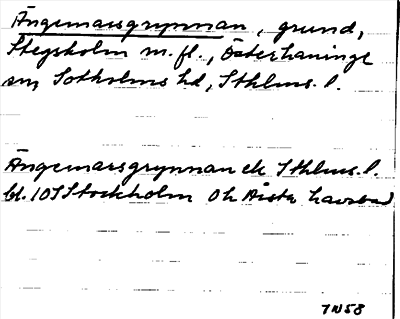 Ängemarsgrynnan, grund,
Stegsholm m.fl., Österhaninge
sn, Sotholms hd, Sthlms. l.
Ängemarsgrynnan ek Sthlms. l.
bl. 10S Stockholm Oh Årsta havsbad
7N58